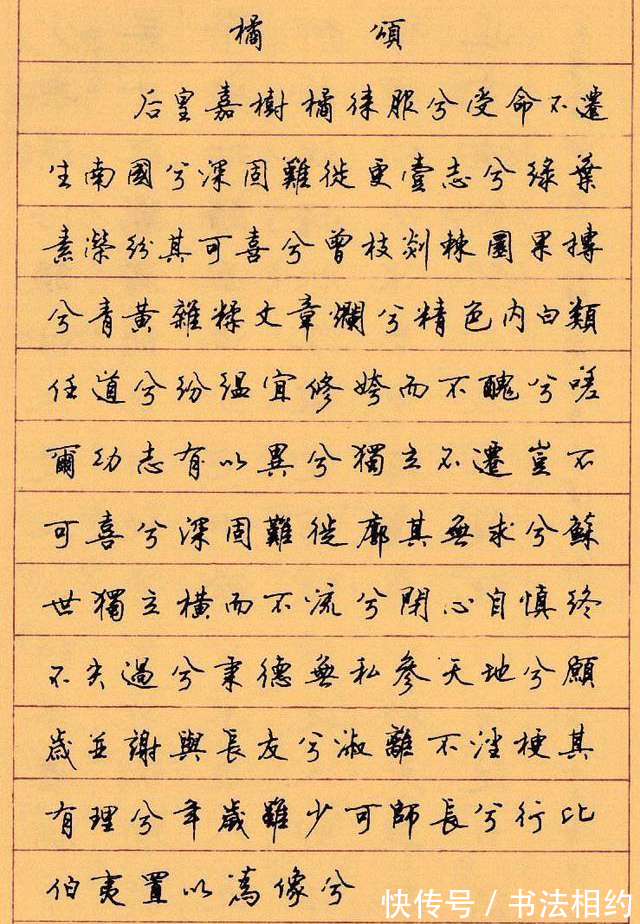 橘 頌
后皇嘉樹橘徠服兮受命不遷
生南國兮深固難徙更壹志兮緑葉
素榮紛其可喜兮曾枝剡棘圜果摶
兮青黃雜糅文章爛兮精色内白類
任道兮紛緼宜修姱而不醜兮嗟
爾幼志有以異兮獨立不遷豈不
可喜兮深固難徙廓其無求兮蘇
世獨立橫而不流兮閉心自慎終
不失過兮秉德無私參天地兮願
歲並謝與長友兮淑離不淫梗其
有理兮年歲雖少可師長兮行比
伯夷置以為像兮
快传号／书法相约